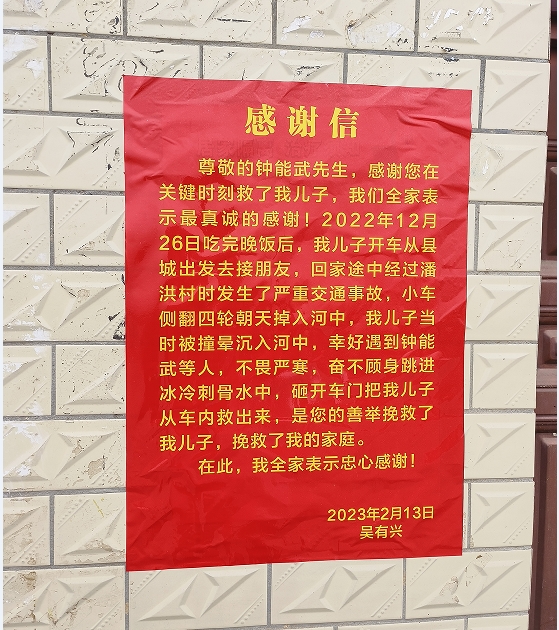 感谢信
尊敬的钟能武先生，感谢您在
关键时刻救了我儿子，我们全家表
示最真诚的感谢！2022年12月
26日吃完晚饭后，我儿子开车从县
城出发去接朋友，回家途中经过潘
洪村时发生了严重交通事故，小车
侧翻四轮朝天掉入河中，我儿子当
时被撞晕沉入河中，幸好遇到钟能
武等人，不畏严寒，奋不顾身跳进
冰冷刺骨水中，砸开车门把我儿子
从车内救出来，是您的善举挽救了
我儿子，挽救了我的家庭。
在此，我全家表示忠心感谢！
2023年2月13日
吴有兴